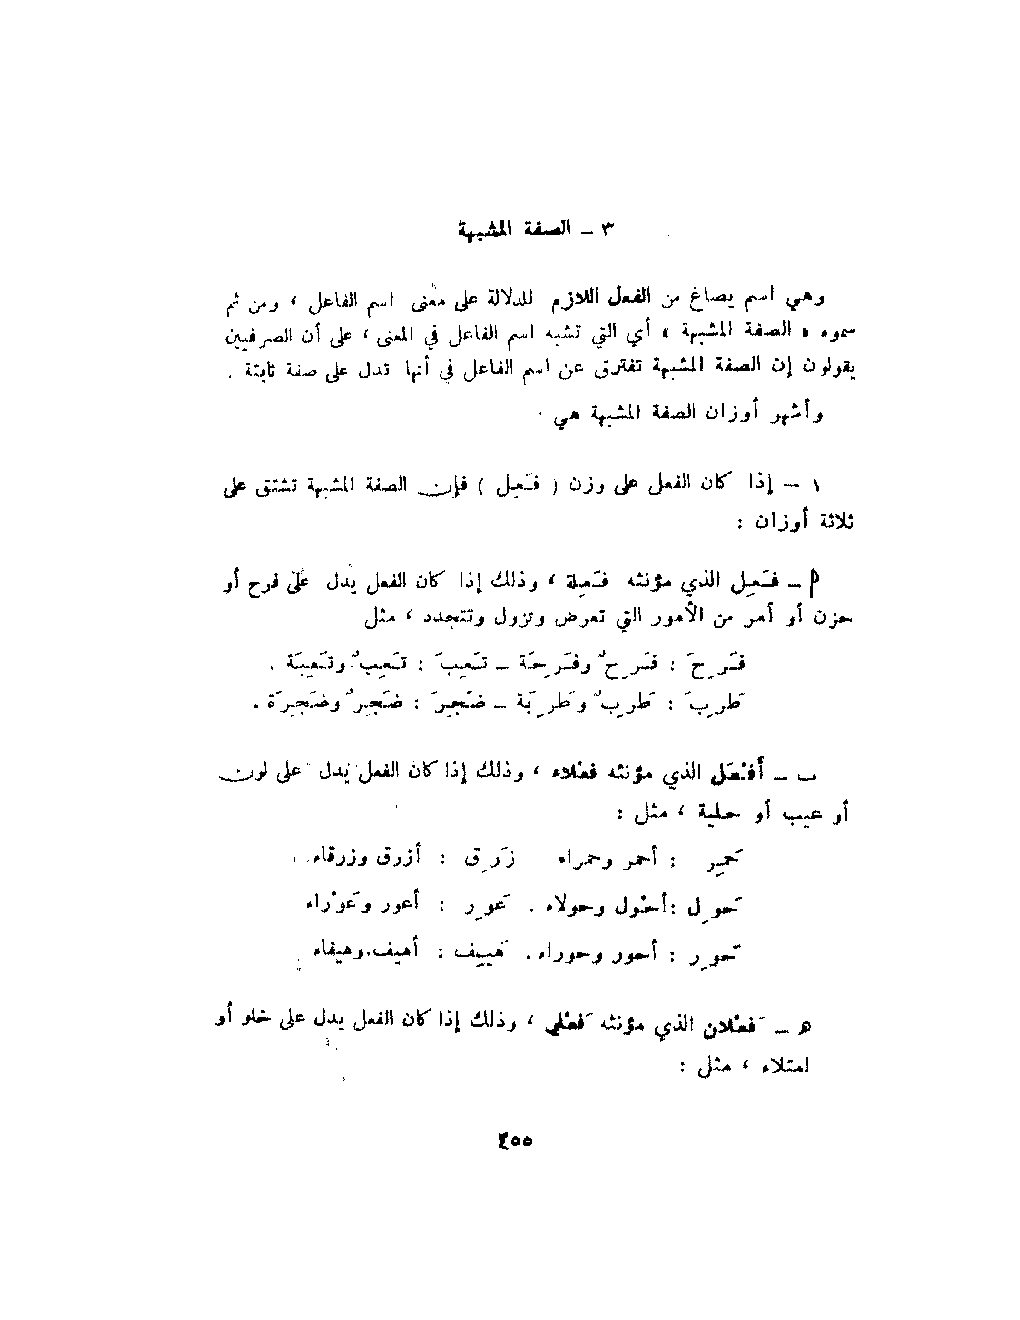 ٣ - الصفة المشبهة
وهي اسم يصاغ من الفعل اللازم للدلالة على معنى اسم الفاعل ، ومن ثم
سموه « الصفة المشبهة » أي التي تشبه اسم الفاعل في المعنى ، على أن الصرفيين
يقولون إن الصفة المشبهة تفترق عن اسم الفاعل في أنها تدل على صفة ثابتة .
وأشهر أوزان الصفة المشبهة هي .
١ - إذا كان الفعل على وزن ( فَعِل ) فإن الصفة المشبهة تشتق على
ثلاثة أوزان :
أ - فَعِل الذي مؤنثه فَعِلة ، وذلك إذا كان الفعل يدل على فرح أو
حزن أو أمر من الأمور التي تعرض وتزول وتتجدد ، مثل
فَرِحَ : فَرِحٌ وفَرِحَة - تَعِبَ : تَعِبٌ وتَعِبَة .
طَرِبَ : طَرِبٌ وطَرِبَة - ضَجِرَ : ضَجِرٌ وضَجِرَة .
ب - أَفْعَل الذي مؤنثه فعْلاء ، وذلك إذا كان الفعل يدل على لون
أو عيب أو حلية ، مثل :
حَمِر : أحمر وحمراء زَرِق : أزرق وزرقاء.
حَوِل : أحْول وحولاء . عَوِر : أعور وعَوْراء
حَوِر : أحور وحوراء. هَيِف : أهيف.وهيفاء
هـ - فَعْلان الذي مؤنثه فَعْلي ، وذلك إذا كان الفعل يدل على خلو أو
امتلاء ، مثل :
٤٥٥